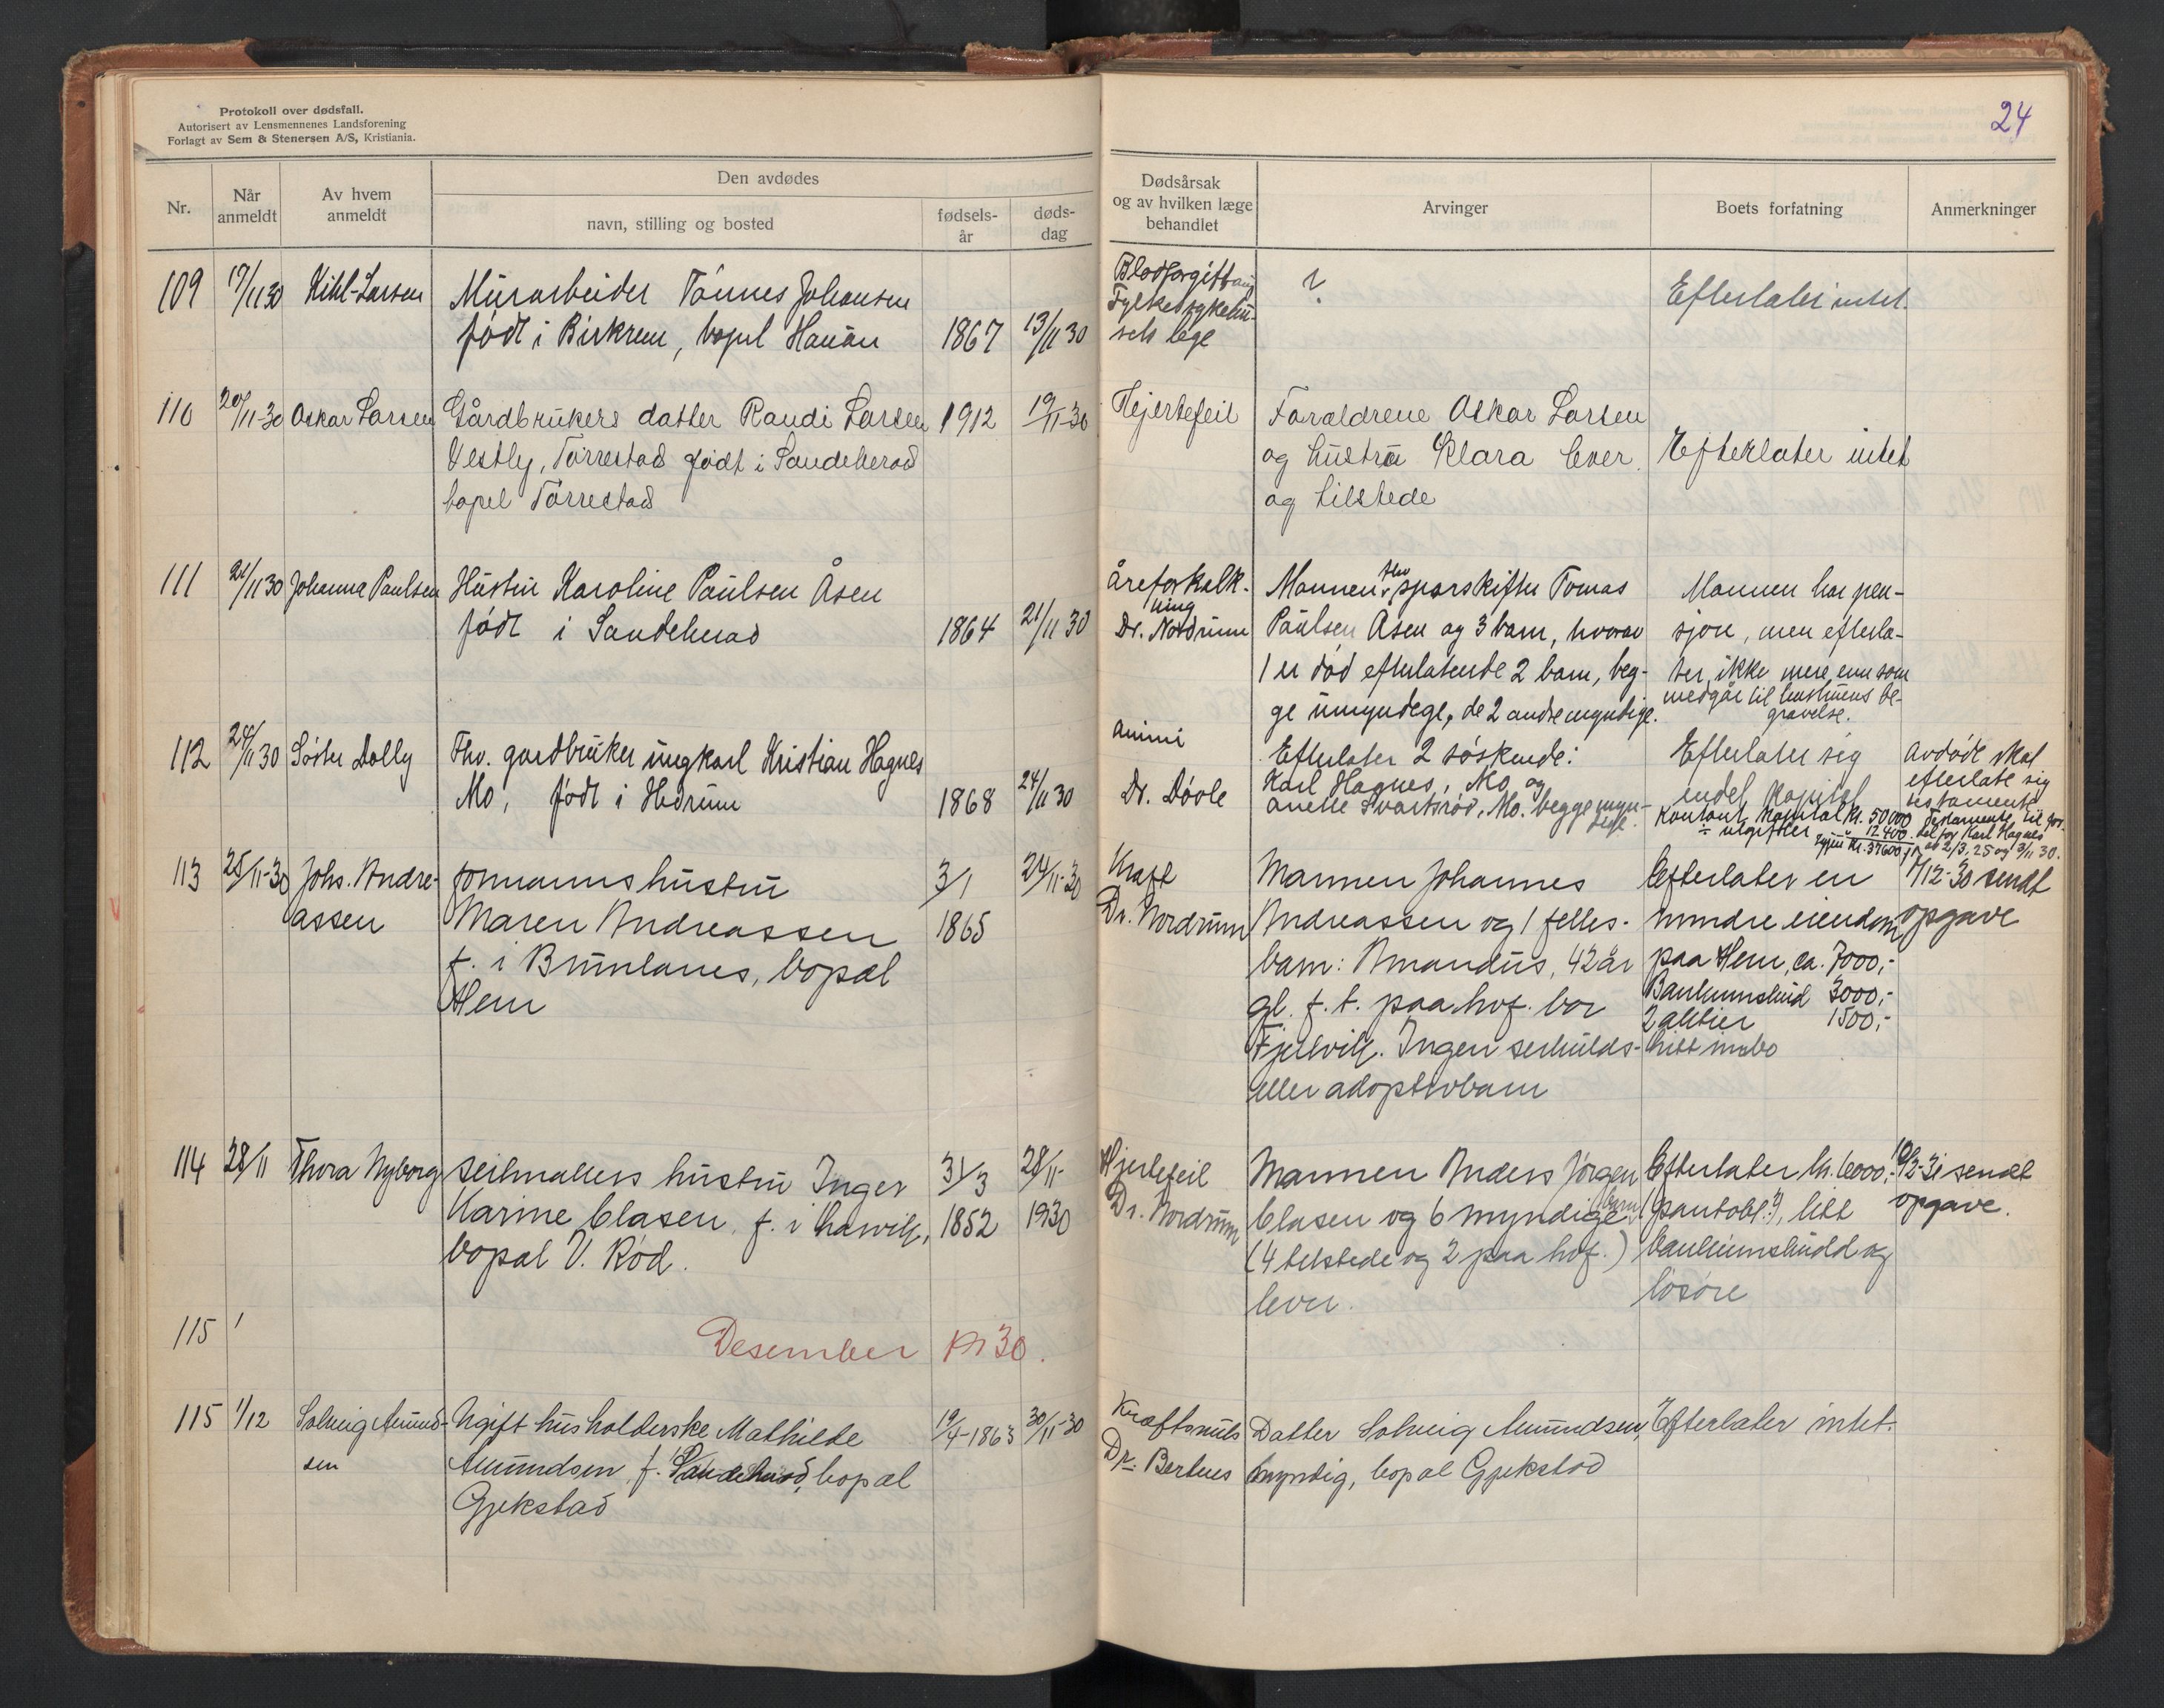 Protokoll over dødsfall.
Autorisert av Lensmennenes Landsforening
Forlagt av Sem & Stenersen A/S, Kristiania.
24
Nr.
Når anmeldt
Av hvem anmeldt
Den avdødes
navn, stilling og bosted
fødsels-år
døds-dag
Dødsårsak og av hvilken læge behandlet
Arvinger
Boets forfatning
Anmerkninger
109 17/11 30 Kihl-Larsen
Murarbeider Tønnes Johansen
født i Birkrem, bopel Hauan
1867 13/11 30
Blodforgiftning
Fylkessykehu-
sets lege
?
Efterlater intet.
110 20/11-30 Oskar Larsen
Gårdbrukers datter Randi Larsen
Vestly, Tørrestad født i Sandeherad
bopel Tørrestad
1912 19/11-30
Hjertefeil
Forældrene Oskar Larsen
og hustru Klara lever
og tilstede
Efterlater intet
111 21/11 30 Johanna Paulsen
Hustru Karoline Paulsen Åsen
født i Sandeherad
1864 21/11 30
Åreforkalk-
ning
Dr. Nordrum
Mannen fhv. sporskifter Tomas
Paulsen Åsen og 3 barn, hvorav
1 er død efterlatende 2 barn, beg-
ge umyndege, de 2 andre myndige.
Mannen har pen-
sjon, men efterla-
ter ikke mere enn som
medgår til hustruens be-
gravelse.
112 24/11 30 Søster Dolly
Fhv. gardbruker ungkarl Kristian Hagnes
Mo, født i Hedrum
1868 24/11 30
Dr. Døvle
Efterlater 2 søskende:
Karl Hagnes, Mo og
Anette Svartsrød, Mo. begge myn-
dige.
Efterlater sig
endel kapital
Kontant kapital kr. 50000
÷ utgifter " 12400
kr. 37600
Avdøde skal
efterlate sig
testamente
Testamente til for-
del for Karl Hagnes
av 2/3.25 og 3/11 30.
113 25/11-30 Johs. Andre-
assen
formanns hustru
Maren Andreassen
f. i Brunlanes, bopæl
Hem
3/1
1865
24/11-30
Kræft
Dr. Nordrum
Mannen Johannes
Andreassen og 1 felles-
barn: Amandus, 42 år
gl. f. t. paa hvf. bor
Tjølvik. Ingen serkulds-
eller adoptivbarn
Efterlater en
mindre eiendom
paa Hem, ca. 7000,-
Bankinnskud 3000,-
2 aktier 1500,-
litt inbo
7/12-30 sendt
opgave
114 28/11 Thora Nyborg
seilmakers hustru Inger
Karine Clasen, f. i Larvik,
bopæl V. Rød.
31/3
1852
28/11-
1930
Hjertefeil
Dr. Nordrum
Mannen Anders Jørgen
Clasen og 6 myndige barn
(4 tilstede og 2 paa hvf.)
lever.
Efterlater kr. 6000,-
(pantobl.?), litt
bankinnskudd og
løsøre
2-31 sendt
opgave.
115 1
Desember 1930.
115 1/12 Solveig Amund-
sen
Ugift husholderske Mathilde
Amundsen, f. Sandeherad, bopæl
Gjekstad
19/4-1863 30/11-30
Kræftsvuls
Dr. Bertnes
Datter Solveig Amundsen,
myndig, bopæl Gjekstad
Efterlater intet.